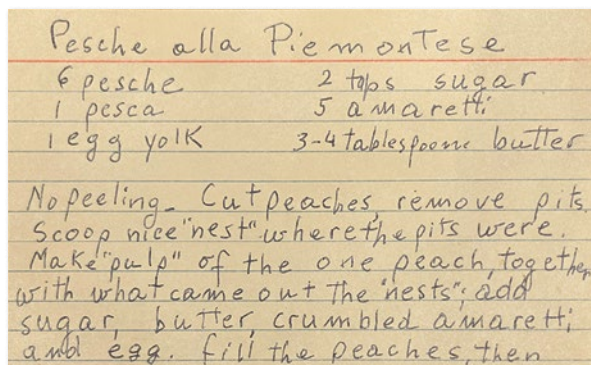 Pesche alla Piemontese
6 pesche 2 tbps sugar
1 pesca 5 amaretti
1 egg yolk 3-4 tablespoons butter
No peeling. Cut peaches, remove pits.
Scoop nice "nest" where the pits were.
Make "pulp" of the one peach, together
with what came out the "nests"; add
sugar, butter, crumbled amaretti
and egg. fill the peaches, then